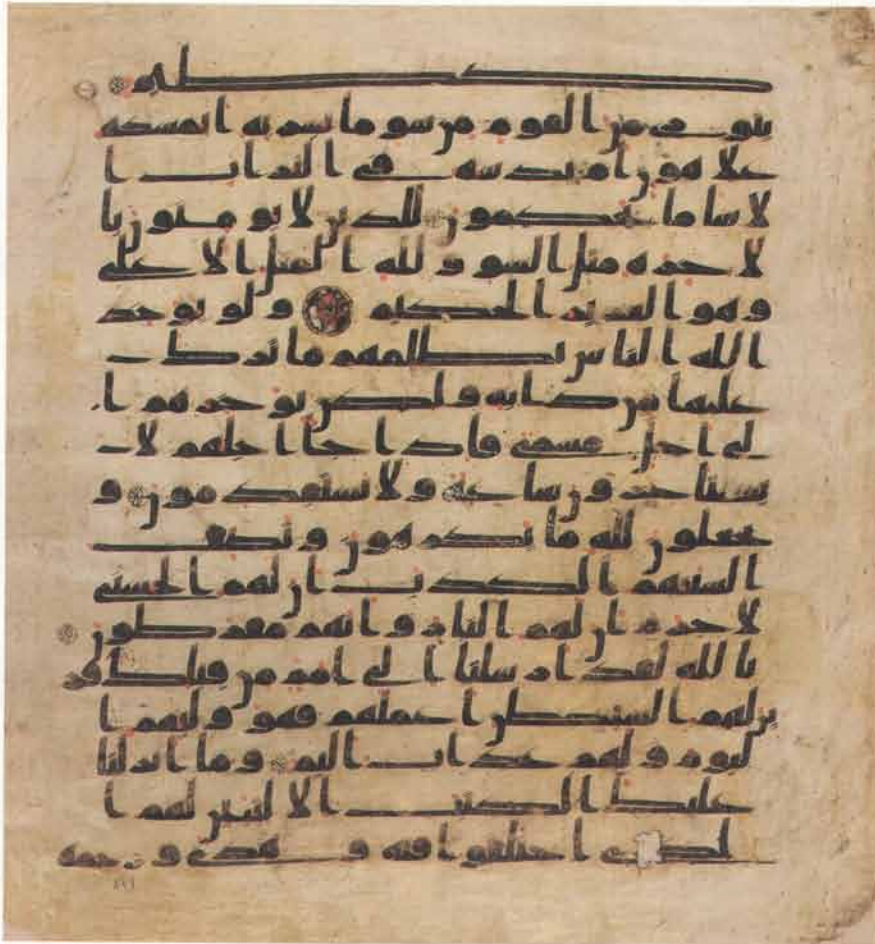 كظيم
يتورى من القوم من سو ما بشر به ايمسكه
علا هون ام يدسه في التراب ا
لا سا ما يحكمون للذين لا يومنون با
لاخره مثل السو ولله المثل الاعلى
وهو العزيز الحكيم ولو يوخذ
الله الناس بظلمهم ما ترك
عليها من دابه ولكن يوخرهم ا
لى اجل مسمى فاذا جا اجلهم لا
يستاخرون ساعه ولا يستقدمون و
يجعلون لله ما يكرهون وتصف
السنتهم الكذب ان لهم الحسنى
لا جرم ان لهم النار وانهم مفرطون
تالله لقد ارسلنا الى امم من قبلك فز
ين لهم الشيطن اعملهم فهو وليهم ا
ليوم ولهم عذاب اليم وما انزلنا
عليك الكتب الا لتبين لهم ا
لذي اختلفوا فيه وهدى ورحمه